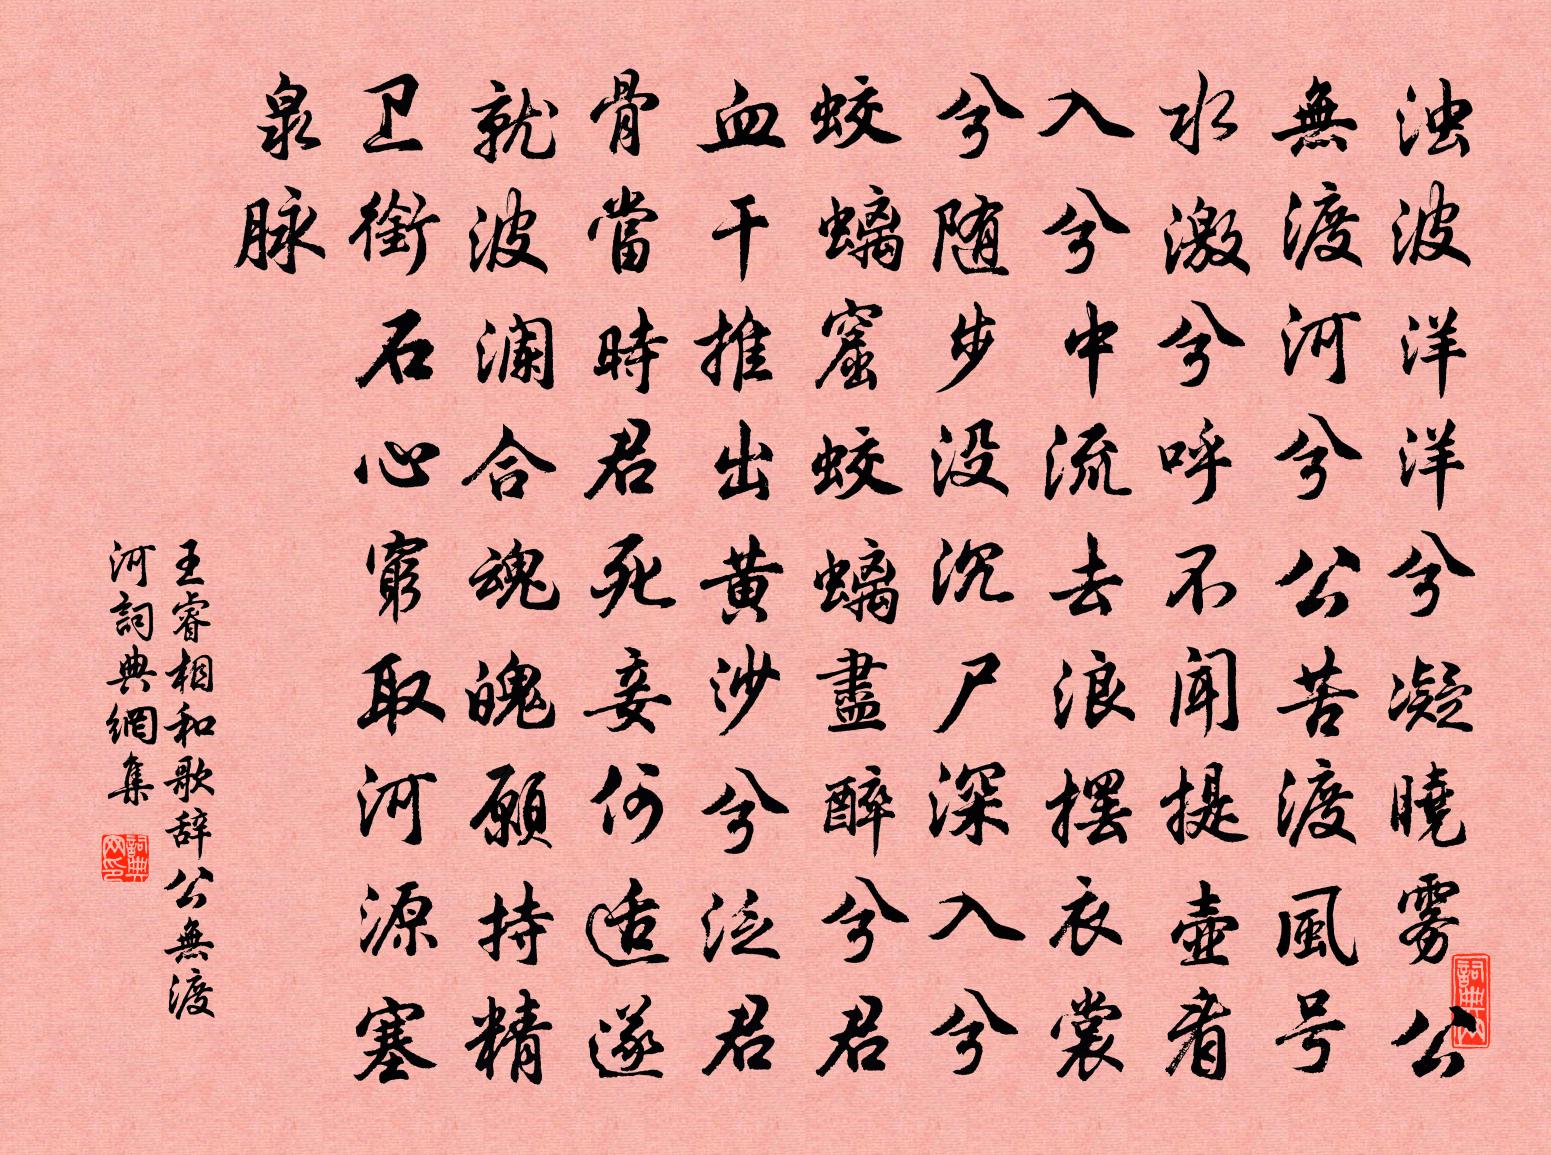 浊波洋洋兮凝曉雾公
無渡河兮公苦渡風号
水激兮呼不闻提壶看
入兮中流去浪摆衣裳
兮随步没沉尸深入兮
蛟螭窟蛟螭盡醉兮君
血干推出黄沙兮泛君
骨當時君死妾何适遂
就波澜合魂魄願持精
卫銜石心窮取河源塞
泉脉
王睿相和歌辞公無渡
河詞典網集
詞典网
詞典网印